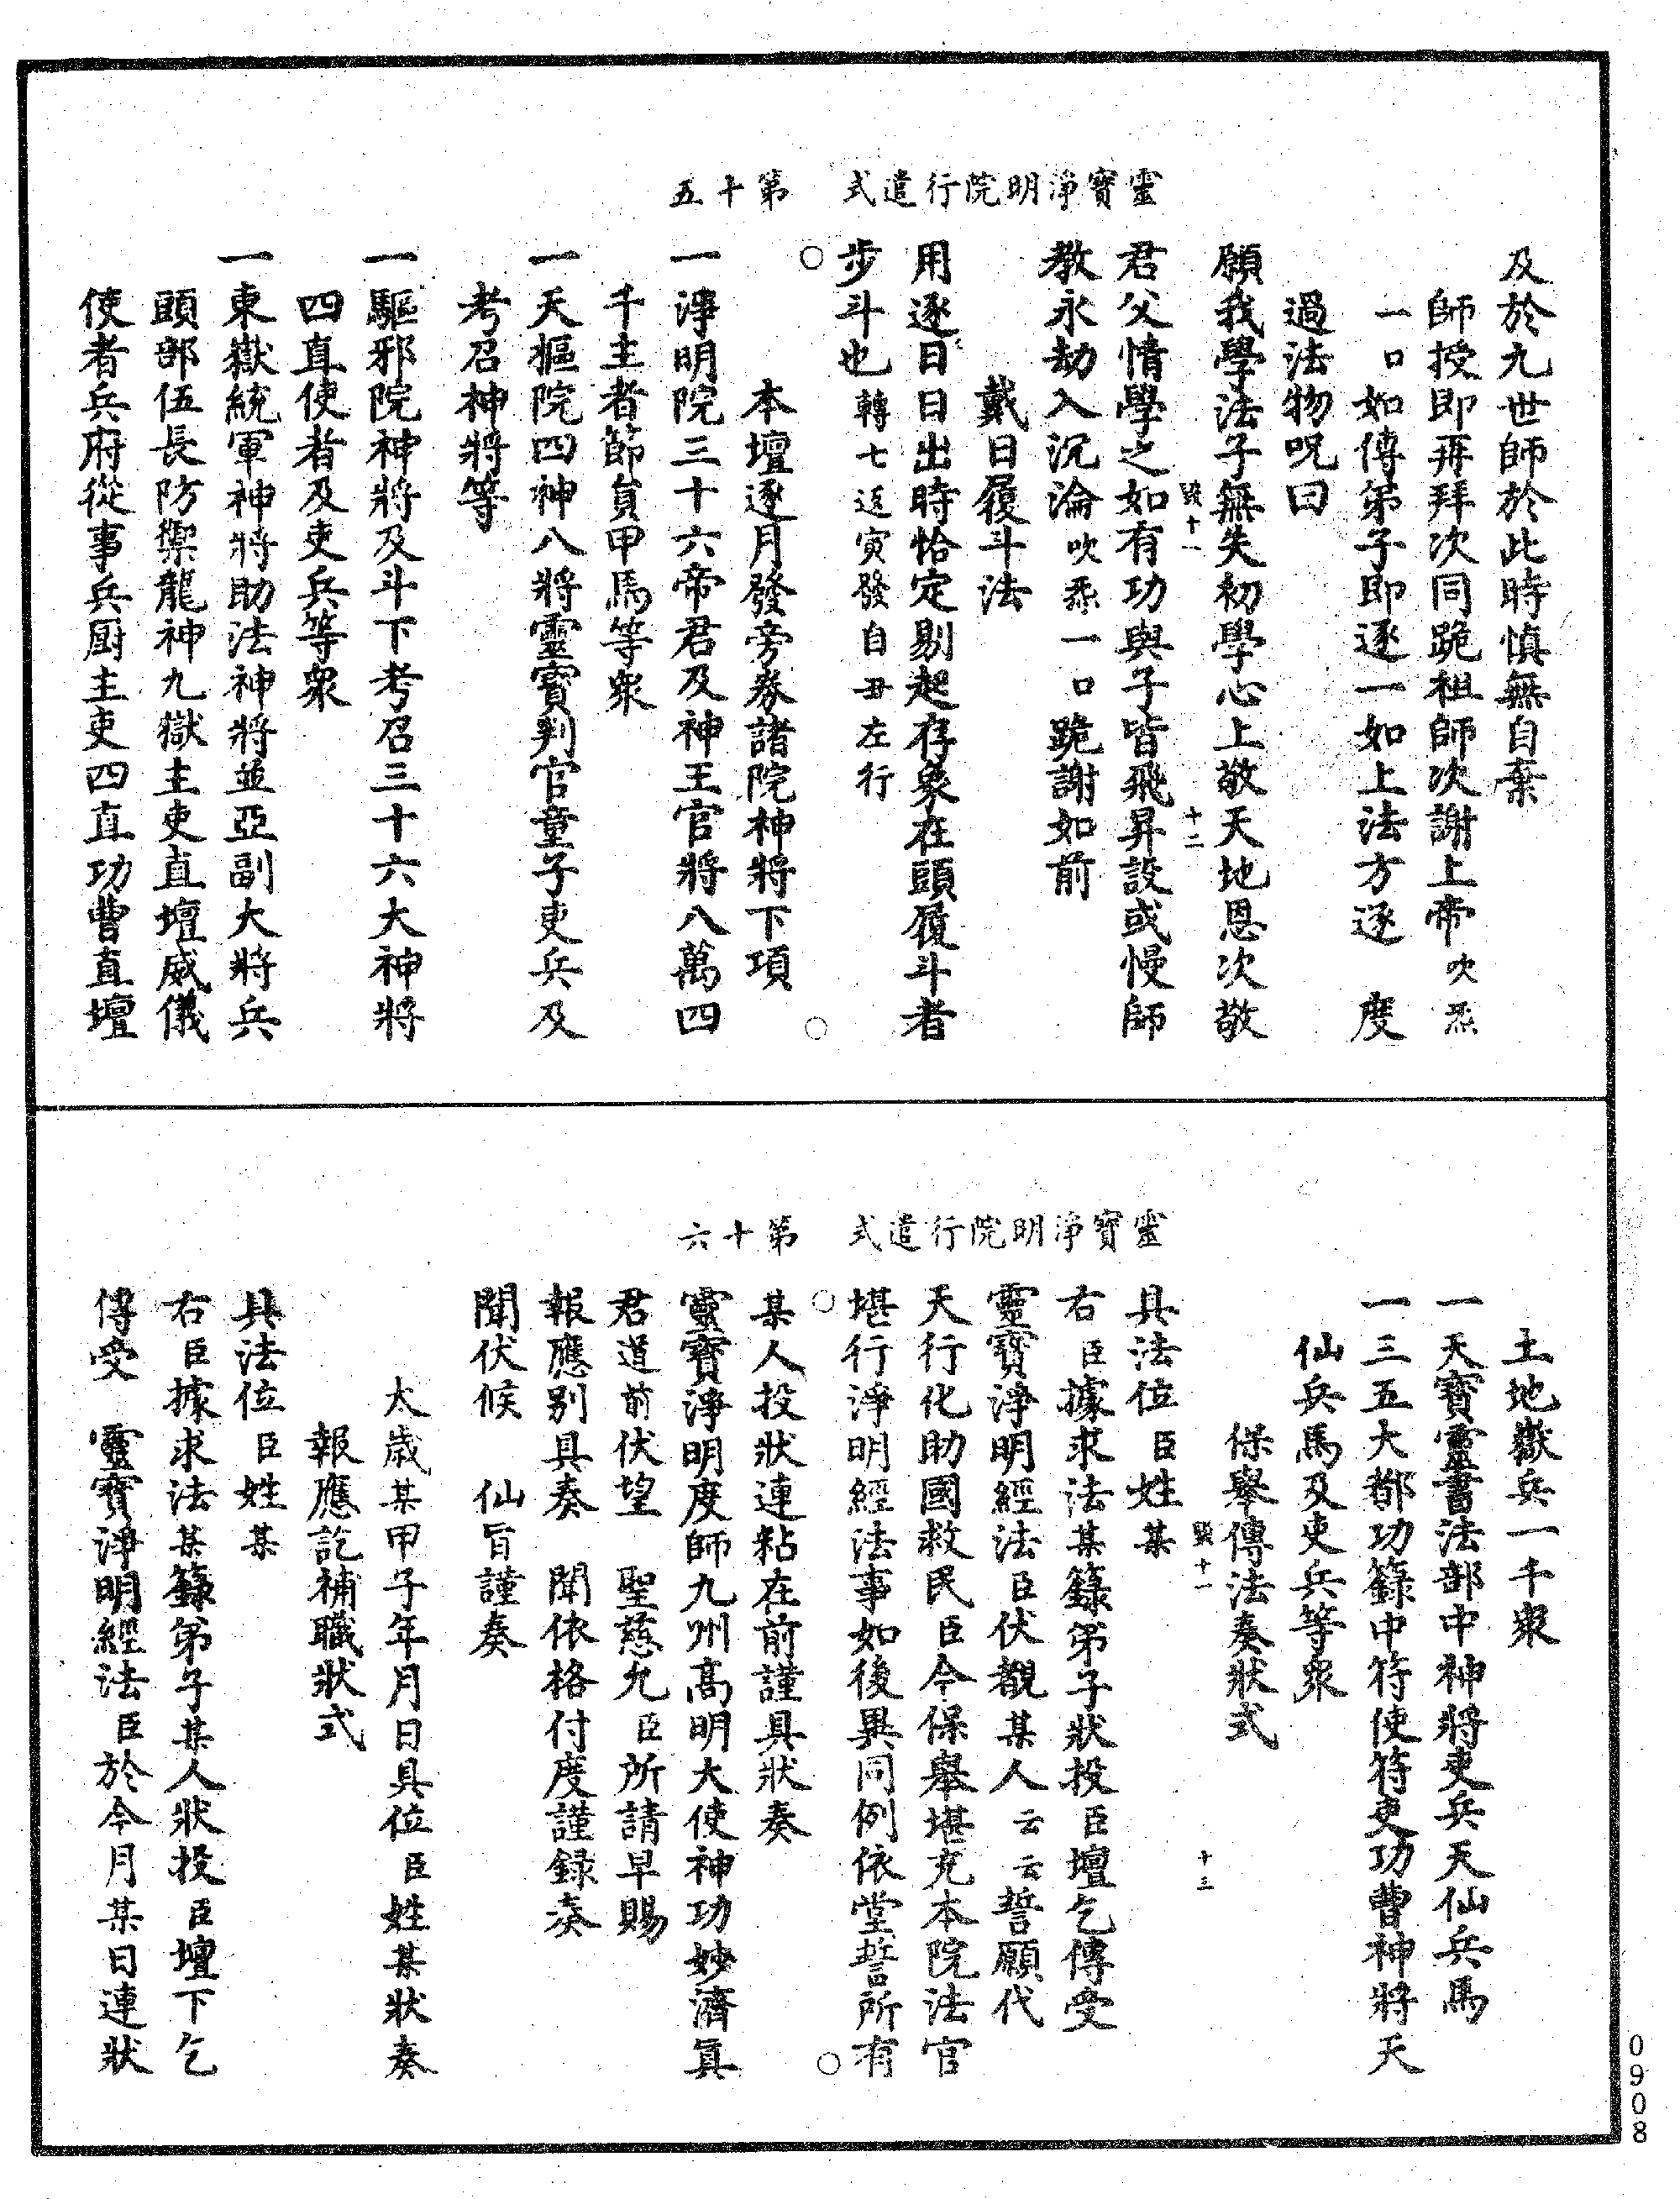 靈寶淨明院行遣式　第十五
及於九世師於此時慎無自棄
師授即再拜次同跪祖師次謝上帝吹炁
一口如傳弟子即逐一如上法方逐　度
過法物呪曰
願我學法子無失初學心上敬天地恩次敬
十二
君父情學之如有功與子皆飛昇設或慢師
教永劫入沉淪吹炁一口跪謝如前
戴日履斗法
用逐日日出時恰定剔起存象在頭履斗者
步斗也轉七返寅發自丑左行
本壇逐月發旁券諸院神將下項
一淨明院三十六帝君及神王官將八萬四
千主者節員甲馬等衆
一天樞院四神八將靈寶判官童子吏兵及
考召神將等
一驅邪院神將及斗下考召三十六大神將
四直使者及吏兵等衆
一東嶽統軍神將助法神將並亞副大將兵
頭部伍長防禦龍神九獄主吏直壇威儀
使者兵府從事兵厨主吏四直功曹直壇
靈寶淨明院行遣式　第十六
土地嶽兵一千衆
一天寶靈書法部中神將吏兵天仙兵馬
一三五大都功籙中符使符吏功曹神將天
仙兵馬及吏兵等衆
保舉傳法奏狀式
十三
具法位臣姓某
右臣據求法某籙弟子狀投臣壇乞傳受
靈寶淨明經法臣伏覩某人云云誓願代
天行化助國救民臣今保舉堪充本院法官
堪行淨明經法事如後異同例依堂誓所有
某人投狀連粘在前謹具狀奏
靈寶淨明度師九州高明大使神功妙濟眞
君道前伏望　聖慈允臣所請早賜
報應别具奏　聞依格付度謹録奏
聞伏候　仙旨謹奏
太歲某甲子年月日具位臣姓某狀奏
報應訖補職狀式
具法位臣姓某
右臣據求法某籙弟子某人狀投臣壇下乞
傳受　靈寶淨明經法臣於今月某日連狀
0908